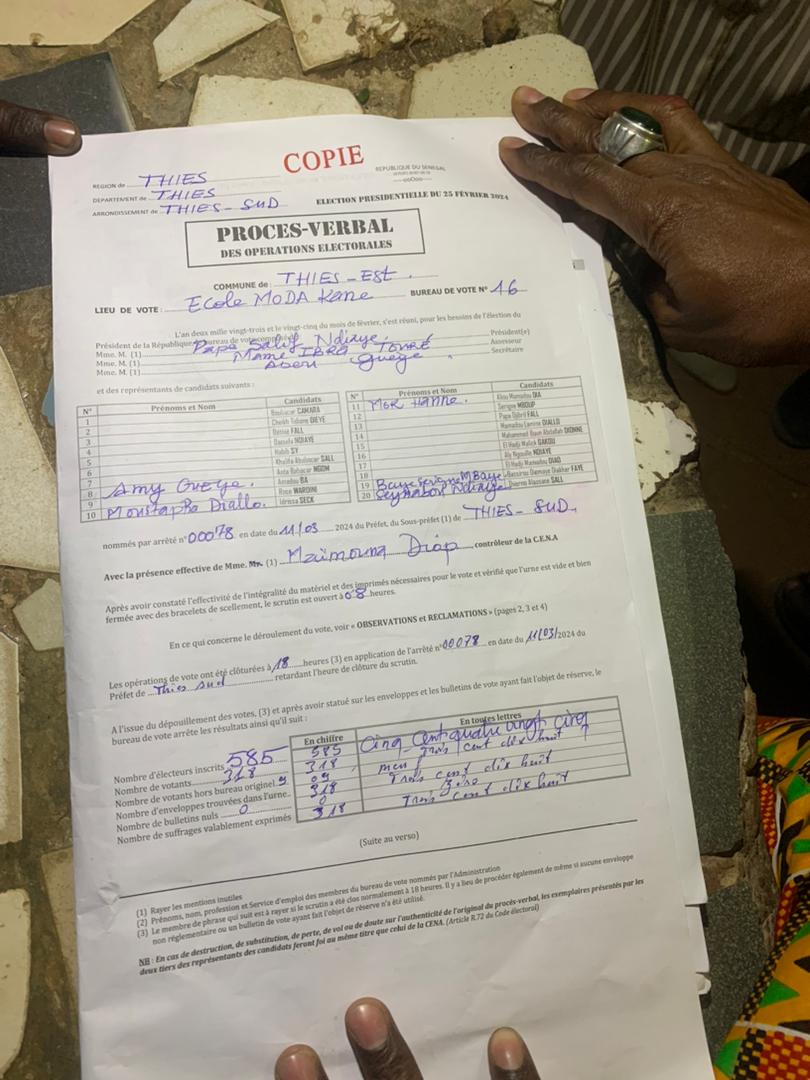 COPIE
REPUBLIQUE DU SENEGAL
REGION de THIES
DEPARTEMENT de THIES
ARRONDISSEMENT de THIES - SUD
ELECTION PRESIDENTIELLE DU 25 FÉVRIER 2024
PROCES-VERBAL
DES OPERATIONS ELECTORALES
COMMUNE de : THIES - EST.
LIEU DE VOTE : Ecole MODA Kane BUREAU DE VOTE N° 16
L'an deux mille vingt-trois et le vingt-cinq du mois de février, s'est réuni, pour les besoins de l'élection du
Président de la République, bureau de vote Papa Salif Ndiaye Président(e)
Mme. M. (1) Mame IBRA TOURÉ Assesseur
Mme. M. (1) Abou Gueye Secrétaire
et des représentants de candidats suivants :
N° Prénoms et Nom Candidats
1 Boubacar CAMARA
2 Cheikh Tidiane DIEYE
3 Déthié FALL
4 Daouda NDIAYE
5 Habib SY
6 Khalifa Ababacar SALL
7 Anta Babacar NGOM
8 Amy GUEYE. Amadou BA
9 Rose WARDINI
10 Moustapha Diallo. Idrissa SECK
N° Prénoms et Nom Candidats
11 Mor Hanne. Aliou Mamadou DIA
12 Serigne MBOUP
13 Papa Djibril FALL
14 Mamadou Lamine DIALLO
15 Mahammed Boun Abdallah DIONNE
16 El Hadji Malick GAKOU
17 Aly Ngouille NDIAYE
18 El Hadji Mamadou DIAO
19 Baye Serigne MBaye Bassirou Diomaye Diakhar FAYE
20 Seynabou Ndiaye Thierno Alassane SALL
nommés par arrêté n° 00078 en date du 11/03 2024 du Préfet, du Sous-préfet (1) de THIES - SUD
Avec la présence effective de Mme. Mr. (1) Maïmouna Diop contrôleur de la C.E.N.A
Après avoir constaté l'effectivité de l'intégralité du matériel et des imprimés nécessaires pour le vote et vérifié que l'urne est vide et bien
fermée avec des bracelets de scellement, le scrutin est ouvert à 08 heures.
En ce qui concerne le déroulement du vote, voir « OBSERVATIONS et RECLAMATIONS » (pages 2, 3 et 4)
Les opérations de vote ont été clôturées à 18 heures (3) en application de l'arrêté n° 00078 en date du 11/03/2024 du
Préfet de Thies sud retardant l'heure de clôture du scrutin.
A l'issue du dépouillement des votes, (3) et après avoir statué sur les enveloppes et les bulletins de vote ayant fait l'objet de réserve, le
bureau de vote arrête les résultats ainsi qu'il suit :
En chiffre En toutes lettres
Nombre d'électeurs inscrits 585 585 Cinq Cent quatre vingt cinq
Nombre de votants 318 318 Trois cent dix huit
Nombre de votants hors bureau originel 9 09 neuf
Nombre d'enveloppes trouvées dans l'urne 318 Trois cent dix huit
Nombre de bulletins nuls 0 0 Zéro
Nombre de suffrages valablement exprimés 318 Trois cent dix huit
(Suite au verso)
(1) Rayer les mentions inutiles
(2) Prénoms, nom, profession et Service d'emploi des membres du bureau de vote nommés par l'Administration
(3) Le membre de phrase qui suit est à rayer si le scrutin a été clos normalement à 18 heures. Il y a lieu de procéder également de même si aucune enveloppe
non réglementaire ou un bulletin de vote ayant fait l'objet de réserve n'a été utilisé.
NB : En cas de destruction, de substitution, de perte, de vol ou de doute sur l'authenticité de l'original du procès-verbal, les exemplaires présentés par les
deux tiers des représentants des candidats feront foi au même titre que celui de la CENA. (Article R.72 du Code électoral)